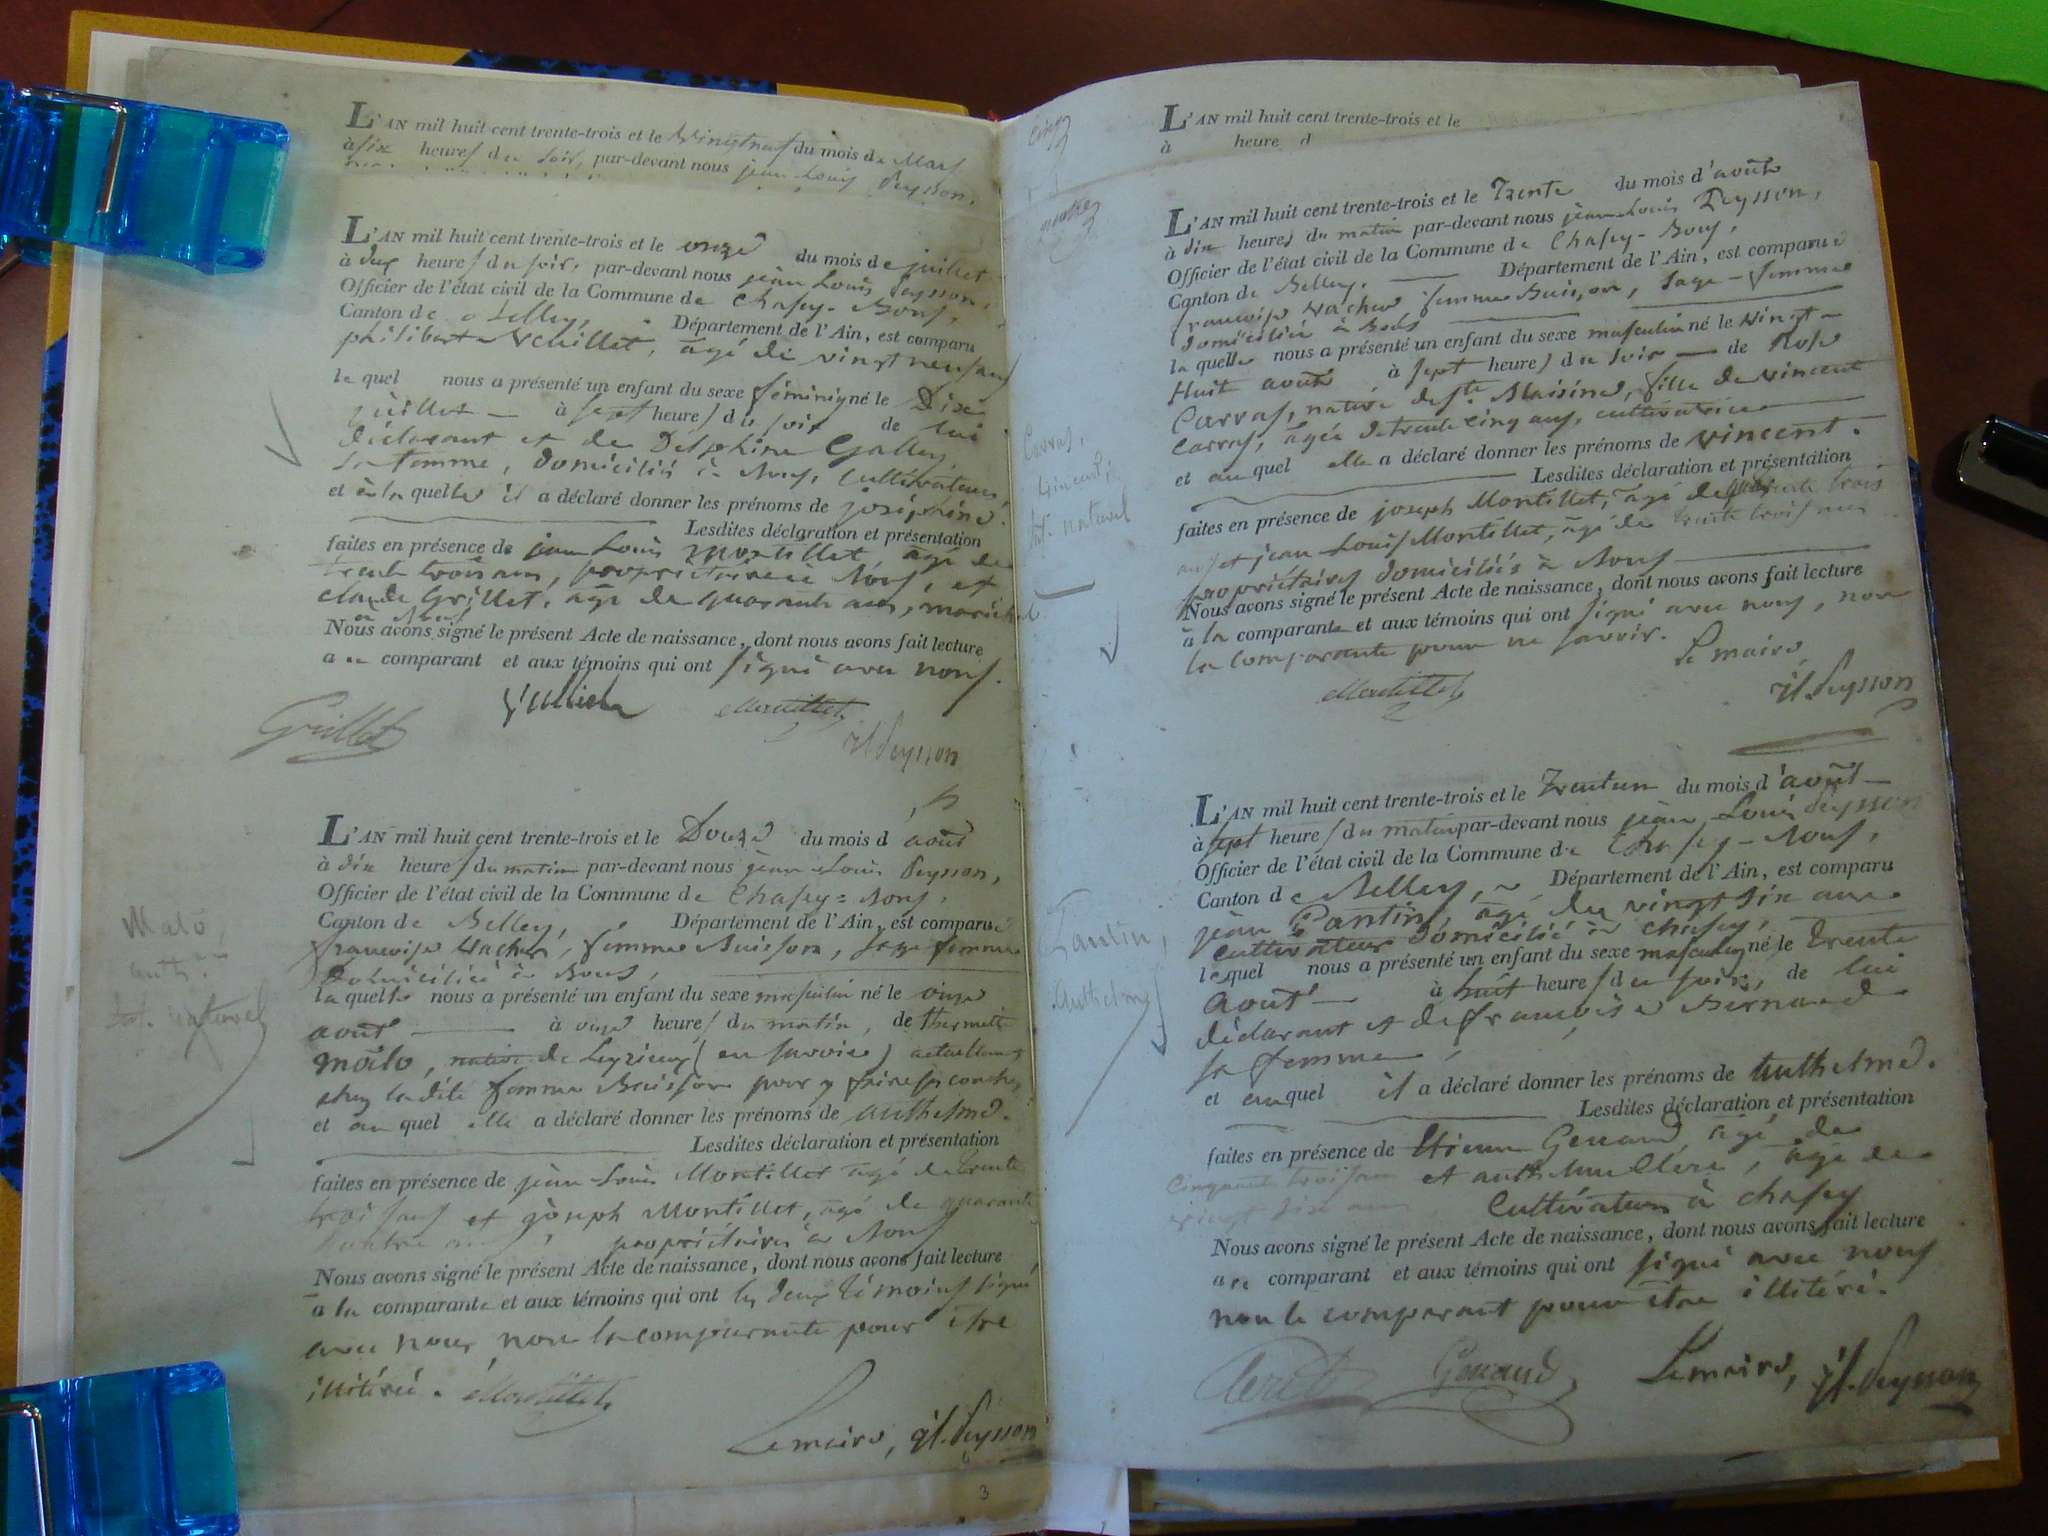 L'AN mil huit cent trente-trois et le vingt neuf du mois de Mars
à six heures du soir, par-devant nous jean Louis Peysson,
L'AN mil huit cent trente-trois et le onze du mois de juillet
à six heures du soir, par-devant nous jean Louis Peysson,
Officier de l'état civil de la Commune de Chasey-Bons,
Canton de Belley, Département de l'Ain, est comparu
philibert Veuillet, âgé de vingt neuf ans
le quel nous a présenté un enfant du sexe féminin né le Dix
juillet — à sept heures du soir de lui
déclarant et de Delphine Galley
sa femme, domiciliés à Bons, cultivateurs,
et à la quelle il a déclaré donner les prénoms de joséphine.
Lesdites déclaration et présentation
faites en présence de jean Louis Montillet âgé de
trente trois ans, propriétaire à Bons, et
claude Grillet, âgé de quarante ans, maréchal
à Bons
Nous avons signé le présent Acte de naissance, dont nous avons fait lecture
au comparant et aux témoins qui ont signé avec nous.
Grillet Montillet
jl. Peysson
L'AN mil huit cent trente-trois et le Douze du mois d'août
à dix heures du matin par-devant nous jean Louis Peysson,
Officier de l'état civil de la Commune de Chasey-Bons,
Canton de Belley, Département de l'Ain, est comparue
françoise Vacher, femme Buisson, sage femme
Domiciliée à Bons,
Malo,
anth.me
enf. naturel
la quelle nous a présenté un enfant du sexe masculin né le onze
août — à onze heures du matin, de thermette
Malo, native de Leyrieux (en Savoie) actuellement
chez la dite femme Buisson pour y faire ses couches
et au quel elle a déclaré donner les prénoms de anthelme.
Lesdites déclaration et présentation
faites en présence de jean Louis Montillet âgé de trente
trois ans et joseph Montillet, âgé de quarante
quatre ans, propriétaires à Bons
Nous avons signé le présent Acte de naissance, dont nous avons fait lecture
à la comparante et aux témoins qui ont les deux témoins signé
avec nous, non la comparante pour être
illitéré. Montillet
Le maire, jl. Peysson
3
L'AN mil huit cent trente-trois et le
à heure d
L'AN mil huit cent trente-trois et le Trente du mois d'août
à dix heures du matin par-devant nous jean Louis Peysson,
Officier de l'état civil de la Commune de Chasey-Bons,
Canton de Belley. — Département de l'Ain, est comparue
françoise Vacher femme Buisson, sage-femme
domiciliée à Bons
la quelle nous a présenté un enfant du sexe masculin né le vingt-
Huit août à sept heures du soir — de Rose
Carras, native de Ste Blaisine, fille de vincent
carras, âgée de trente cinq ans, cultivatrice
et au quel elle a déclaré donner les prénoms de vincent.
Carras,
vincent,
enf. naturel
Lesdites déclaration et présentation
faites en présence de joseph Montillet, âgé de quarante trois
ans et jean Louis Montillet, âgé de trente trois ans
propriétaires domiciliés à Bons
Nous avons signé le présent Acte de naissance, dont nous avons fait lecture
à la comparante et aux témoins qui ont signé avec nous, non
la comparante pour ne savoir.
Le maire
Montillet jl. Peysson
L'AN mil huit cent trente-trois et le Trente un du mois d'août —
à sept heures du matin par-devant nous jean Louis Peysson
Officier de l'état civil de la Commune de Chasey-Bons,
Canton de Belley, Département de l'Ain, est comparu
jean Pantin, âgé de vingt six ans
cultivateur domicilié à chasey,
Pantin,
Anthelme
le quel nous a présenté un enfant du sexe masculin né le trente
août — à huit heures du soir, de lui
déclarant et de françoise Bernard
sa femme,
et au quel il a déclaré donner les prénoms de Anthelme.
Lesdites déclaration et présentation
faites en présence de Etienne Genaud, âgé de
cinquante trois ans et anthelme Clerc, âgé de
vingt six ans cultivateurs à chasey
Nous avons signé le présent Acte de naissance, dont nous avons fait lecture
au comparant et aux témoins qui ont signé avec nous
non le comparant pour être illitéré.
Clerc Genaud Le maire, jl. Peysson